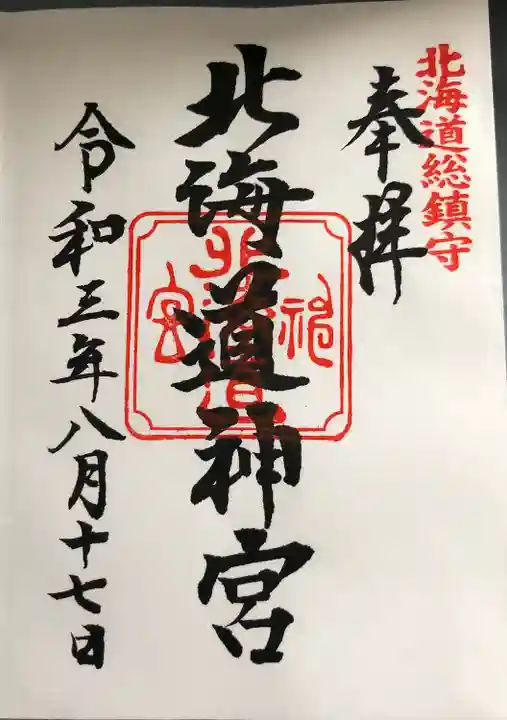 北海道総鎮守
奉拝
北海道神宮
令和三年八月十七日